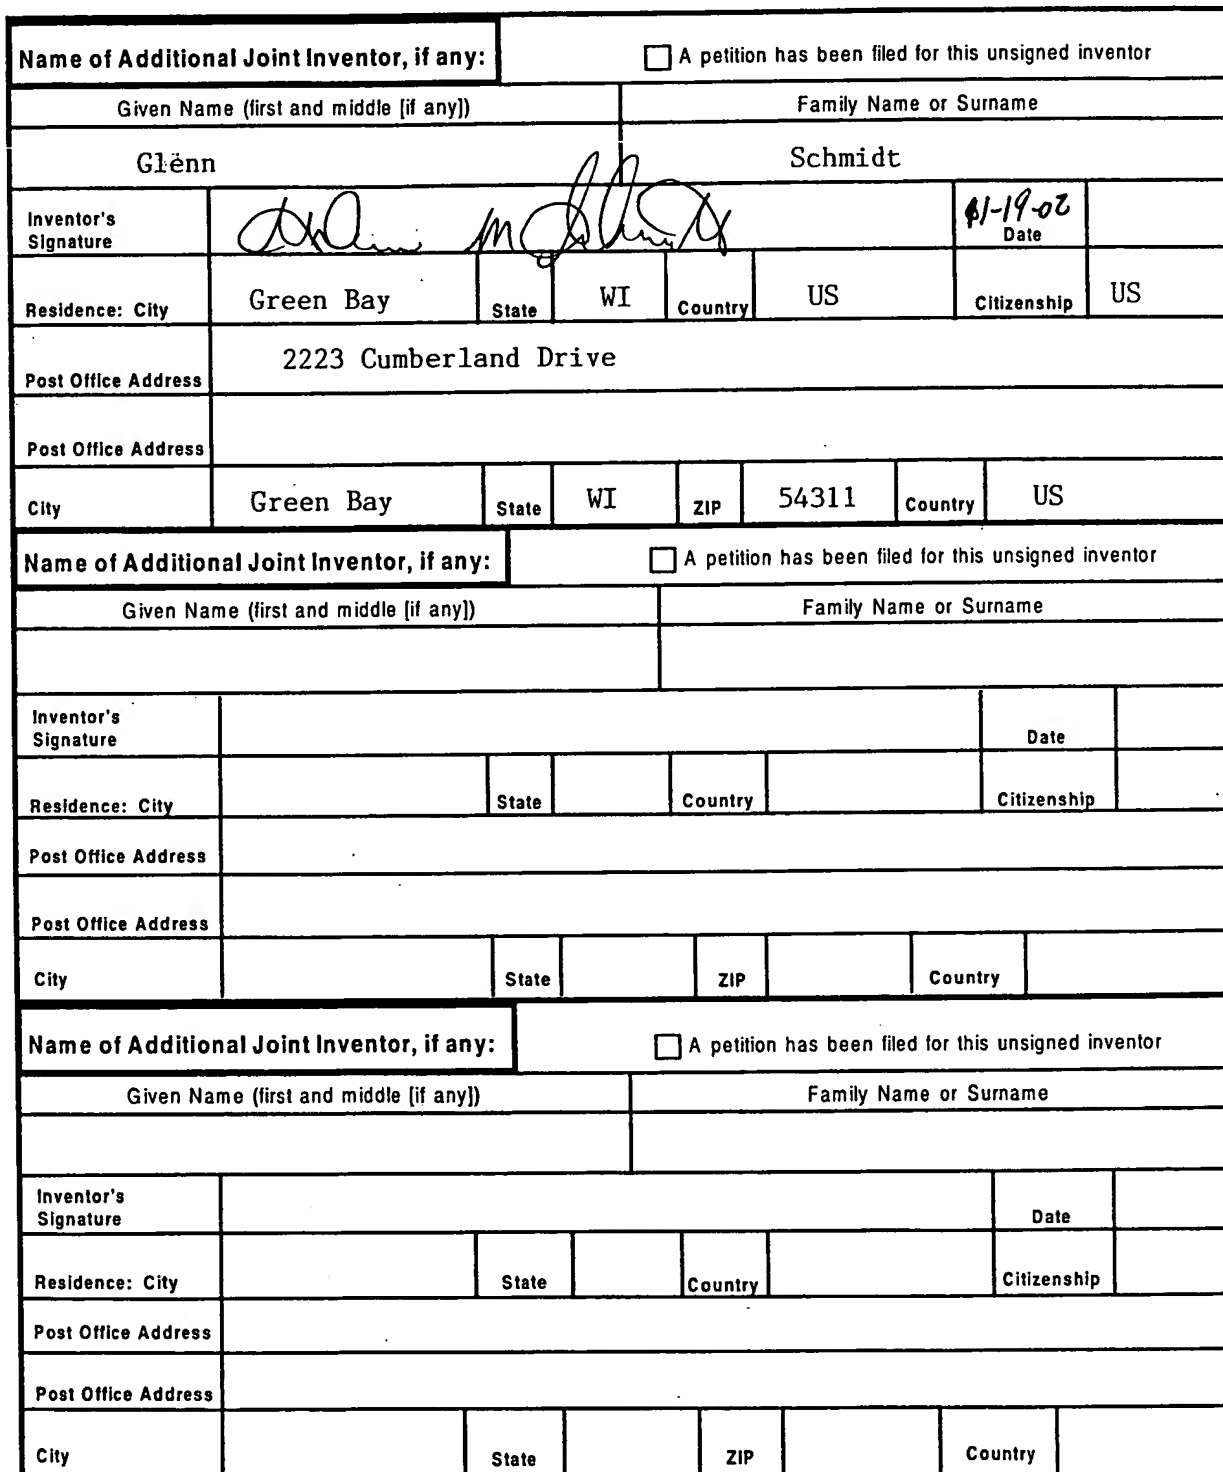 Name of Additional Joint Inventor, if any: A petition has been filed for this unsigned inventor
Given Name (first and middle [if any]) Family Name or Surname
Glenn Schmidt
Inventor's Signature 1-19-02 Date
Residence: City Green Bay State WI Country US Citizenship US
Post Office Address 2223 Cumberland Drive
Post Office Address
City Green Bay State WI ZIP 54311 Country US
Name of Additional Joint Inventor, if any: A petition has been filed for this unsigned inventor
Given Name (first and middle [if any]) Family Name or Surname
Inventor's Signature Date
Residence: City State Country Citizenship
Post Office Address
Post Office Address
City State ZIP Country
Name of Additional Joint Inventor, if any: A petition has been filed for this unsigned inventor
Given Name (first and middle [if any]) Family Name or Surname
Inventor's Signature Date
Residence: City State Country Citizenship
Post Office Address
Post Office Address
City State ZIP Country